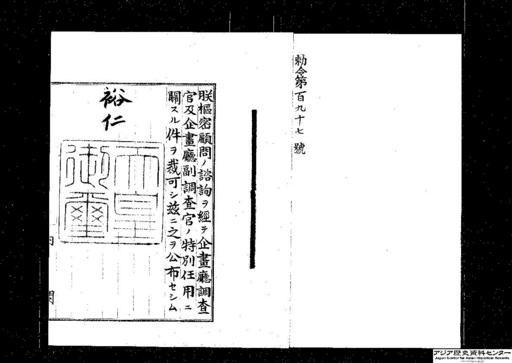 勅令第百九十七號
朕樞密顧問ノ諮詢ヲ經テ企畫廳調査
官及企畫廳副調査官ノ特別任用ニ
關スル件ヲ裁可シ茲ニ之ヲ公布セシム
裕仁
天皇
御璽
アジア歴史資料センター
Japan Center for Asian Historical Records